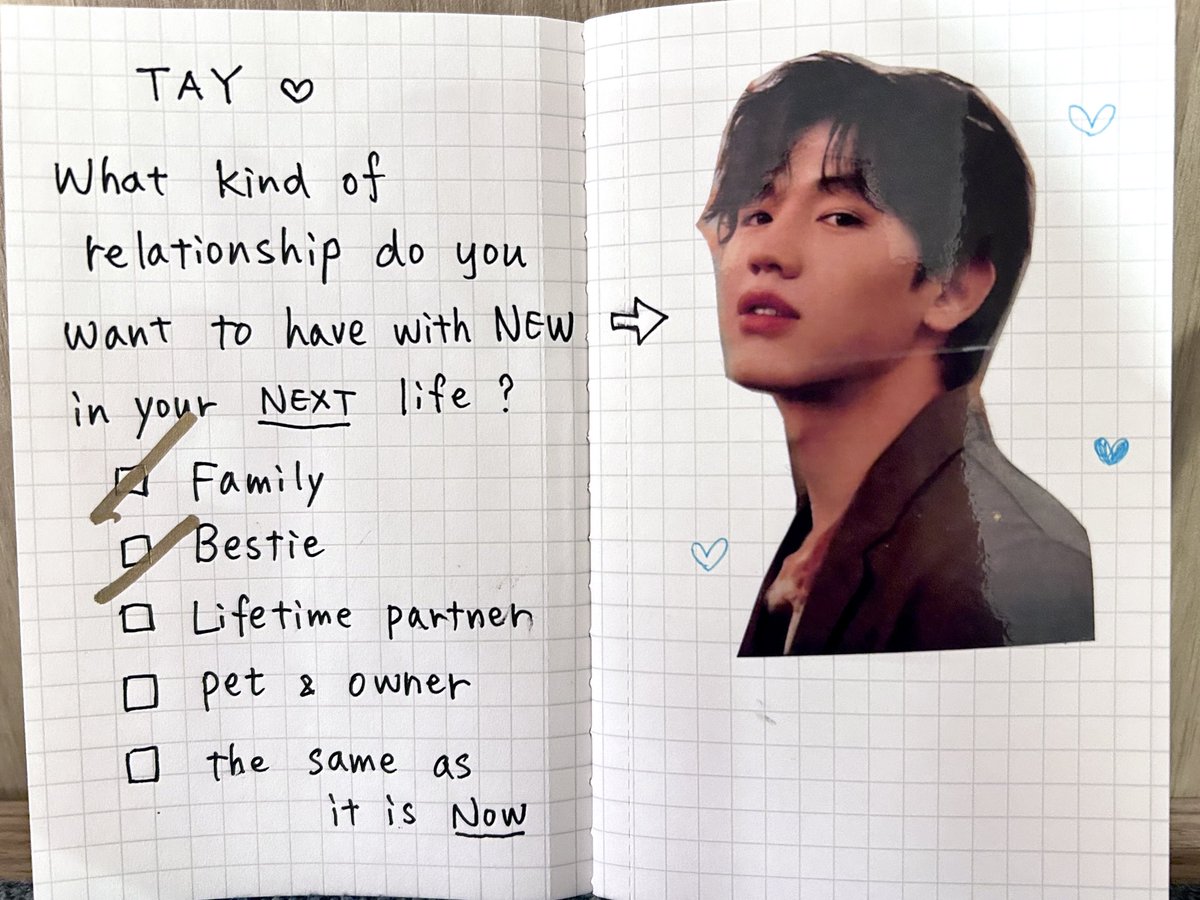 TAY ♡
What kind of
relationship do you
want to have with NEW
in your NEXT life ?
Family
Bestie
Lifetime partner
pet & owner
the same as
it is Now